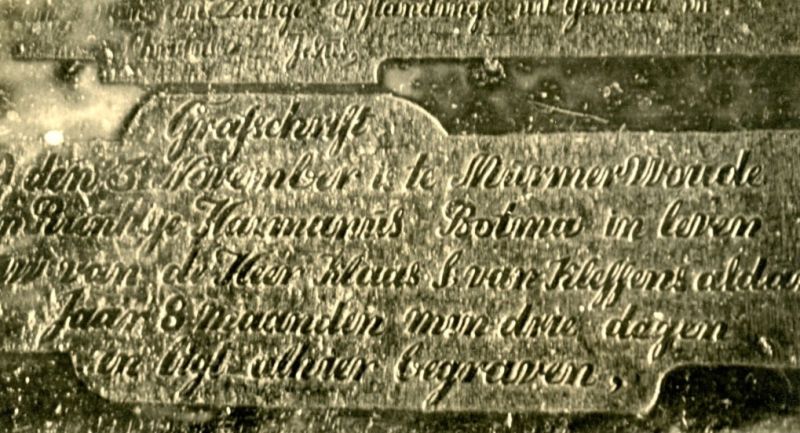 in Zalige Opstandinge uit Genade in
Christus Jesus,
Grafschrift
den 3 November is te MurmerWoude
Harmanus Botma in leven
van de Heer Klaas S van Kleffens aldaar
Jaar 8 maanden min drie dagen
en ligt alhier begraven,